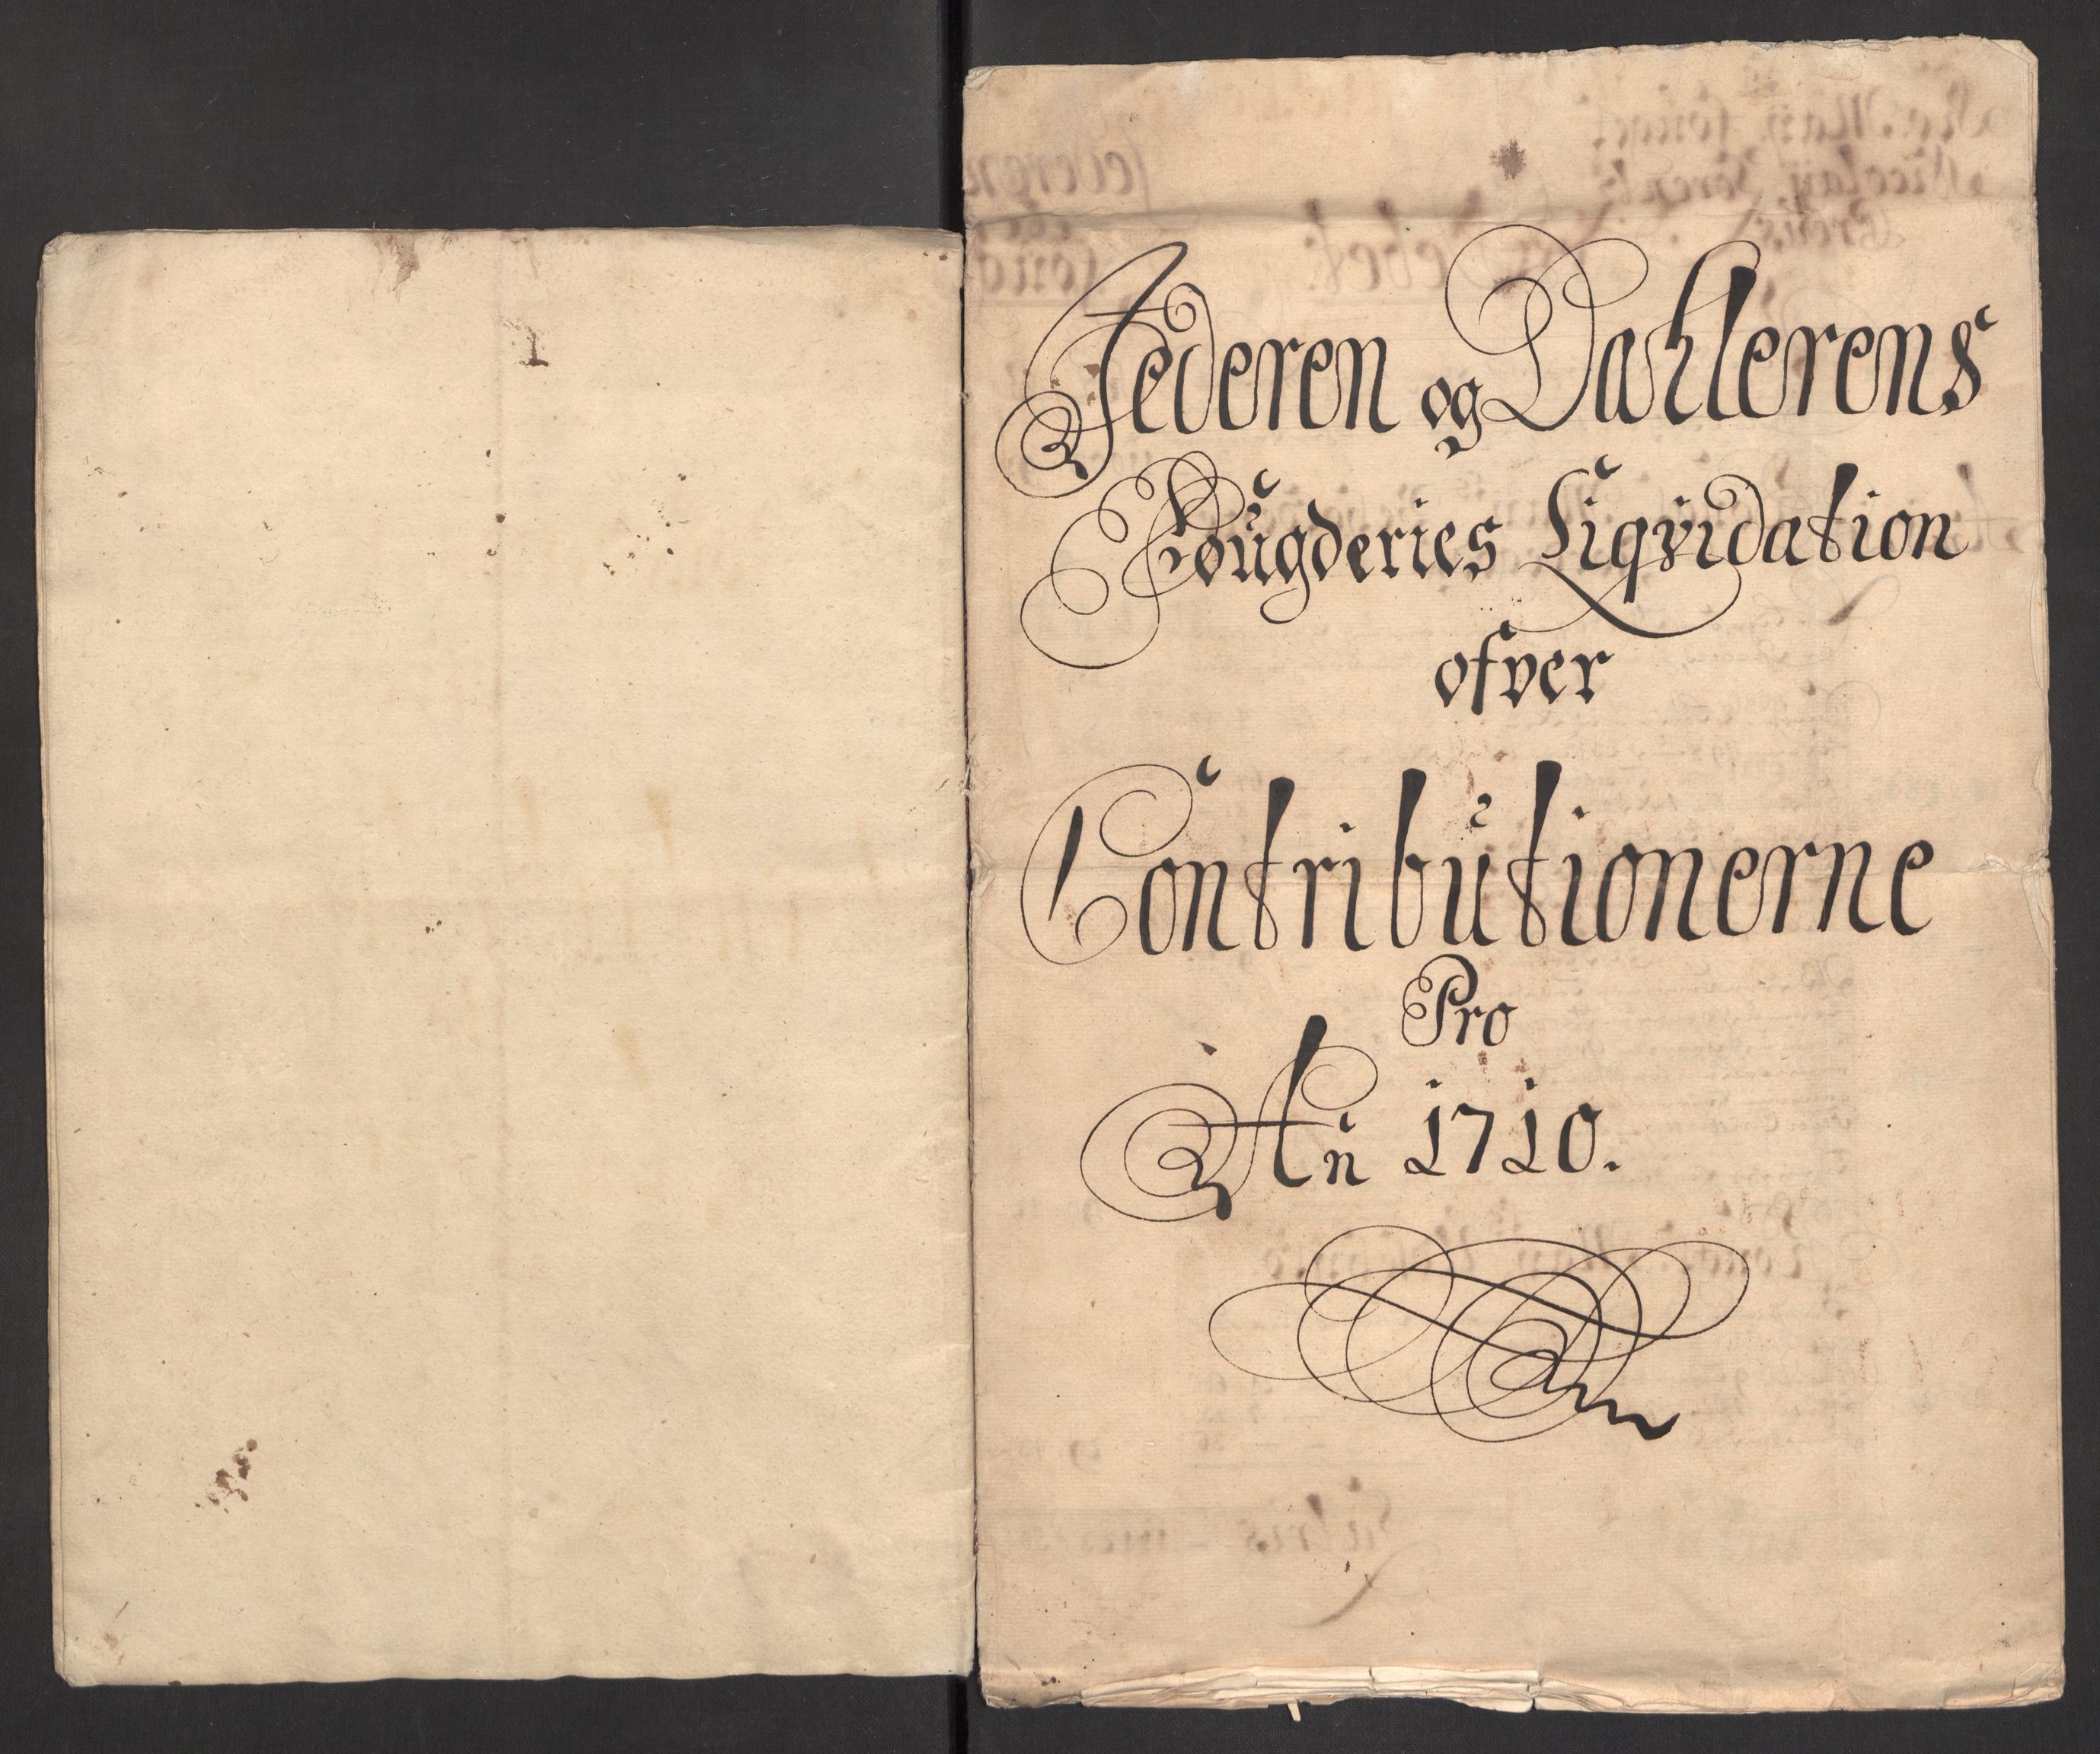 Jederen og Dahlerens
Fougderies Liqvidation
ofver
Contributionerne
Pro
An̄ 1710.